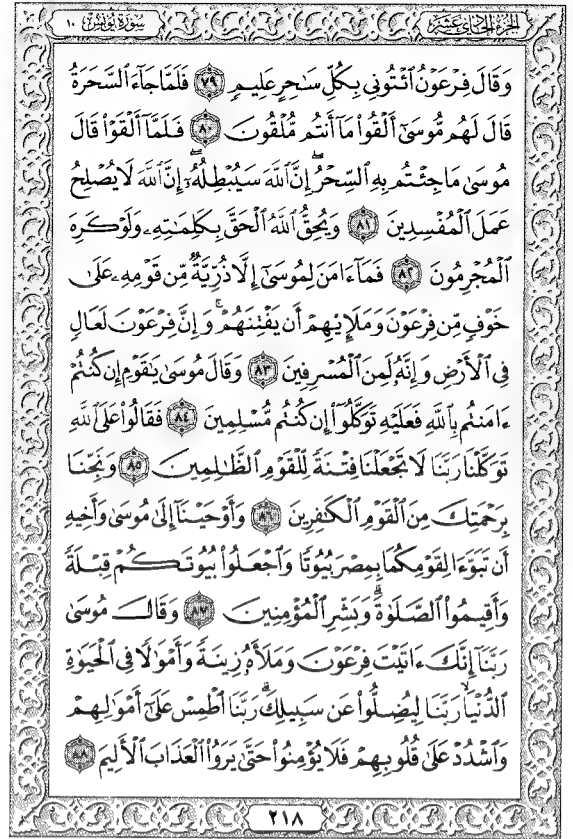 الجزء الحادي عشر سورة يونس ١٠
وَقَالَ فِرْعَوْنُ ٱئْتُونِى بِكُلِّ سَٰحِرٍ عَلِيمٍ ٧٩ فَلَمَّا جَآءَ ٱلسَّحَرَةُ
قَالَ لَهُم مُّوسَىٰٓ أَلْقُوا۟ مَآ أَنتُم مُّلْقُونَ ٨٠ فَلَمَّآ أَلْقَوْا۟ قَالَ
مُوسَىٰ مَا جِئْتُم بِهِ ٱلسِّحْرُ ۖ إِنَّ ٱللَّهَ سَيُبْطِلُهُۥٓ ۖ إِنَّ ٱللَّهَ لَا يُصْلِحُ
عَمَلَ ٱلْمُفْسِدِينَ ٨١ وَيُحِقُّ ٱللَّهُ ٱلْحَقَّ بِكَلِمَٰتِهِۦ وَلَوْ كَرِهَ
ٱلْمُجْرِمُونَ ٨٢ فَمَآ ءَامَنَ لِمُوسَىٰٓ إِلَّا ذُرِّيَّةٌ مِّن قَوْمِهِۦ عَلَىٰ
خَوْفٍ مِّن فِرْعَوْنَ وَمَلَإِي۟هِمْ أَن يَفْتِنَهُمْ ۚ وَإِنَّ فِرْعَوْنَ لَعَالٍ
فِى ٱلْأَرْضِ وَإِنَّهُۥ لَمِنَ ٱلْمُسْرِفِينَ ٨٣ وَقَالَ مُوسَىٰ يَٰقَوْمِ إِن كُنتُمْ
ءَامَنتُم بِٱللَّهِ فَعَلَيْهِ تَوَكَّلُوٓا۟ إِن كُنتُم مُّسْلِمِينَ ٨٤ فَقَالُوا۟ عَلَى ٱللَّهِ
تَوَكَّلْنَا رَبَّنَا لَا تَجْعَلْنَا فِتْنَةً لِّلْقَوْمِ ٱلظَّٰلِمِينَ ٨٥ وَنَجِّنَا
بِرَحْمَتِكَ مِنَ ٱلْقَوْمِ ٱلْكَٰفِرِينَ ٨٦ وَأَوْحَيْنَآ إِلَىٰ مُوسَىٰ وَأَخِيهِ
أَن تَبَوَّءَا لِقَوْمِكُمَا بِمِصْرَ بُيُوتًا وَٱجْعَلُوا۟ بُيُوتَكُمْ قِبْلَةً
وَأَقِيمُوا۟ ٱلصَّلَوٰةَ ۗ وَبَشِّرِ ٱلْمُؤْمِنِينَ ٨٧ وَقَالَ مُوسَىٰ
رَبَّنَآ إِنَّكَ ءَاتَيْتَ فِرْعَوْنَ وَمَلَأَهُۥ زِينَةً وَأَمْوَٰلًا فِى ٱلْحَيَوٰةِ
ٱلدُّنْيَا رَبَّنَا لِيُضِلُّوا۟ عَن سَبِيلِكَ ۖ رَبَّنَا ٱطْمِسْ عَلَىٰٓ أَمْوَٰلِهِمْ
وَٱشْدُدْ عَلَىٰ قُلُوبِهِمْ فَلَا يُؤْمِنُوا۟ حَتَّىٰ يَرَوُا۟ ٱلْعَذَابَ ٱلْأَلِيمَ ٨٨
٢١٨